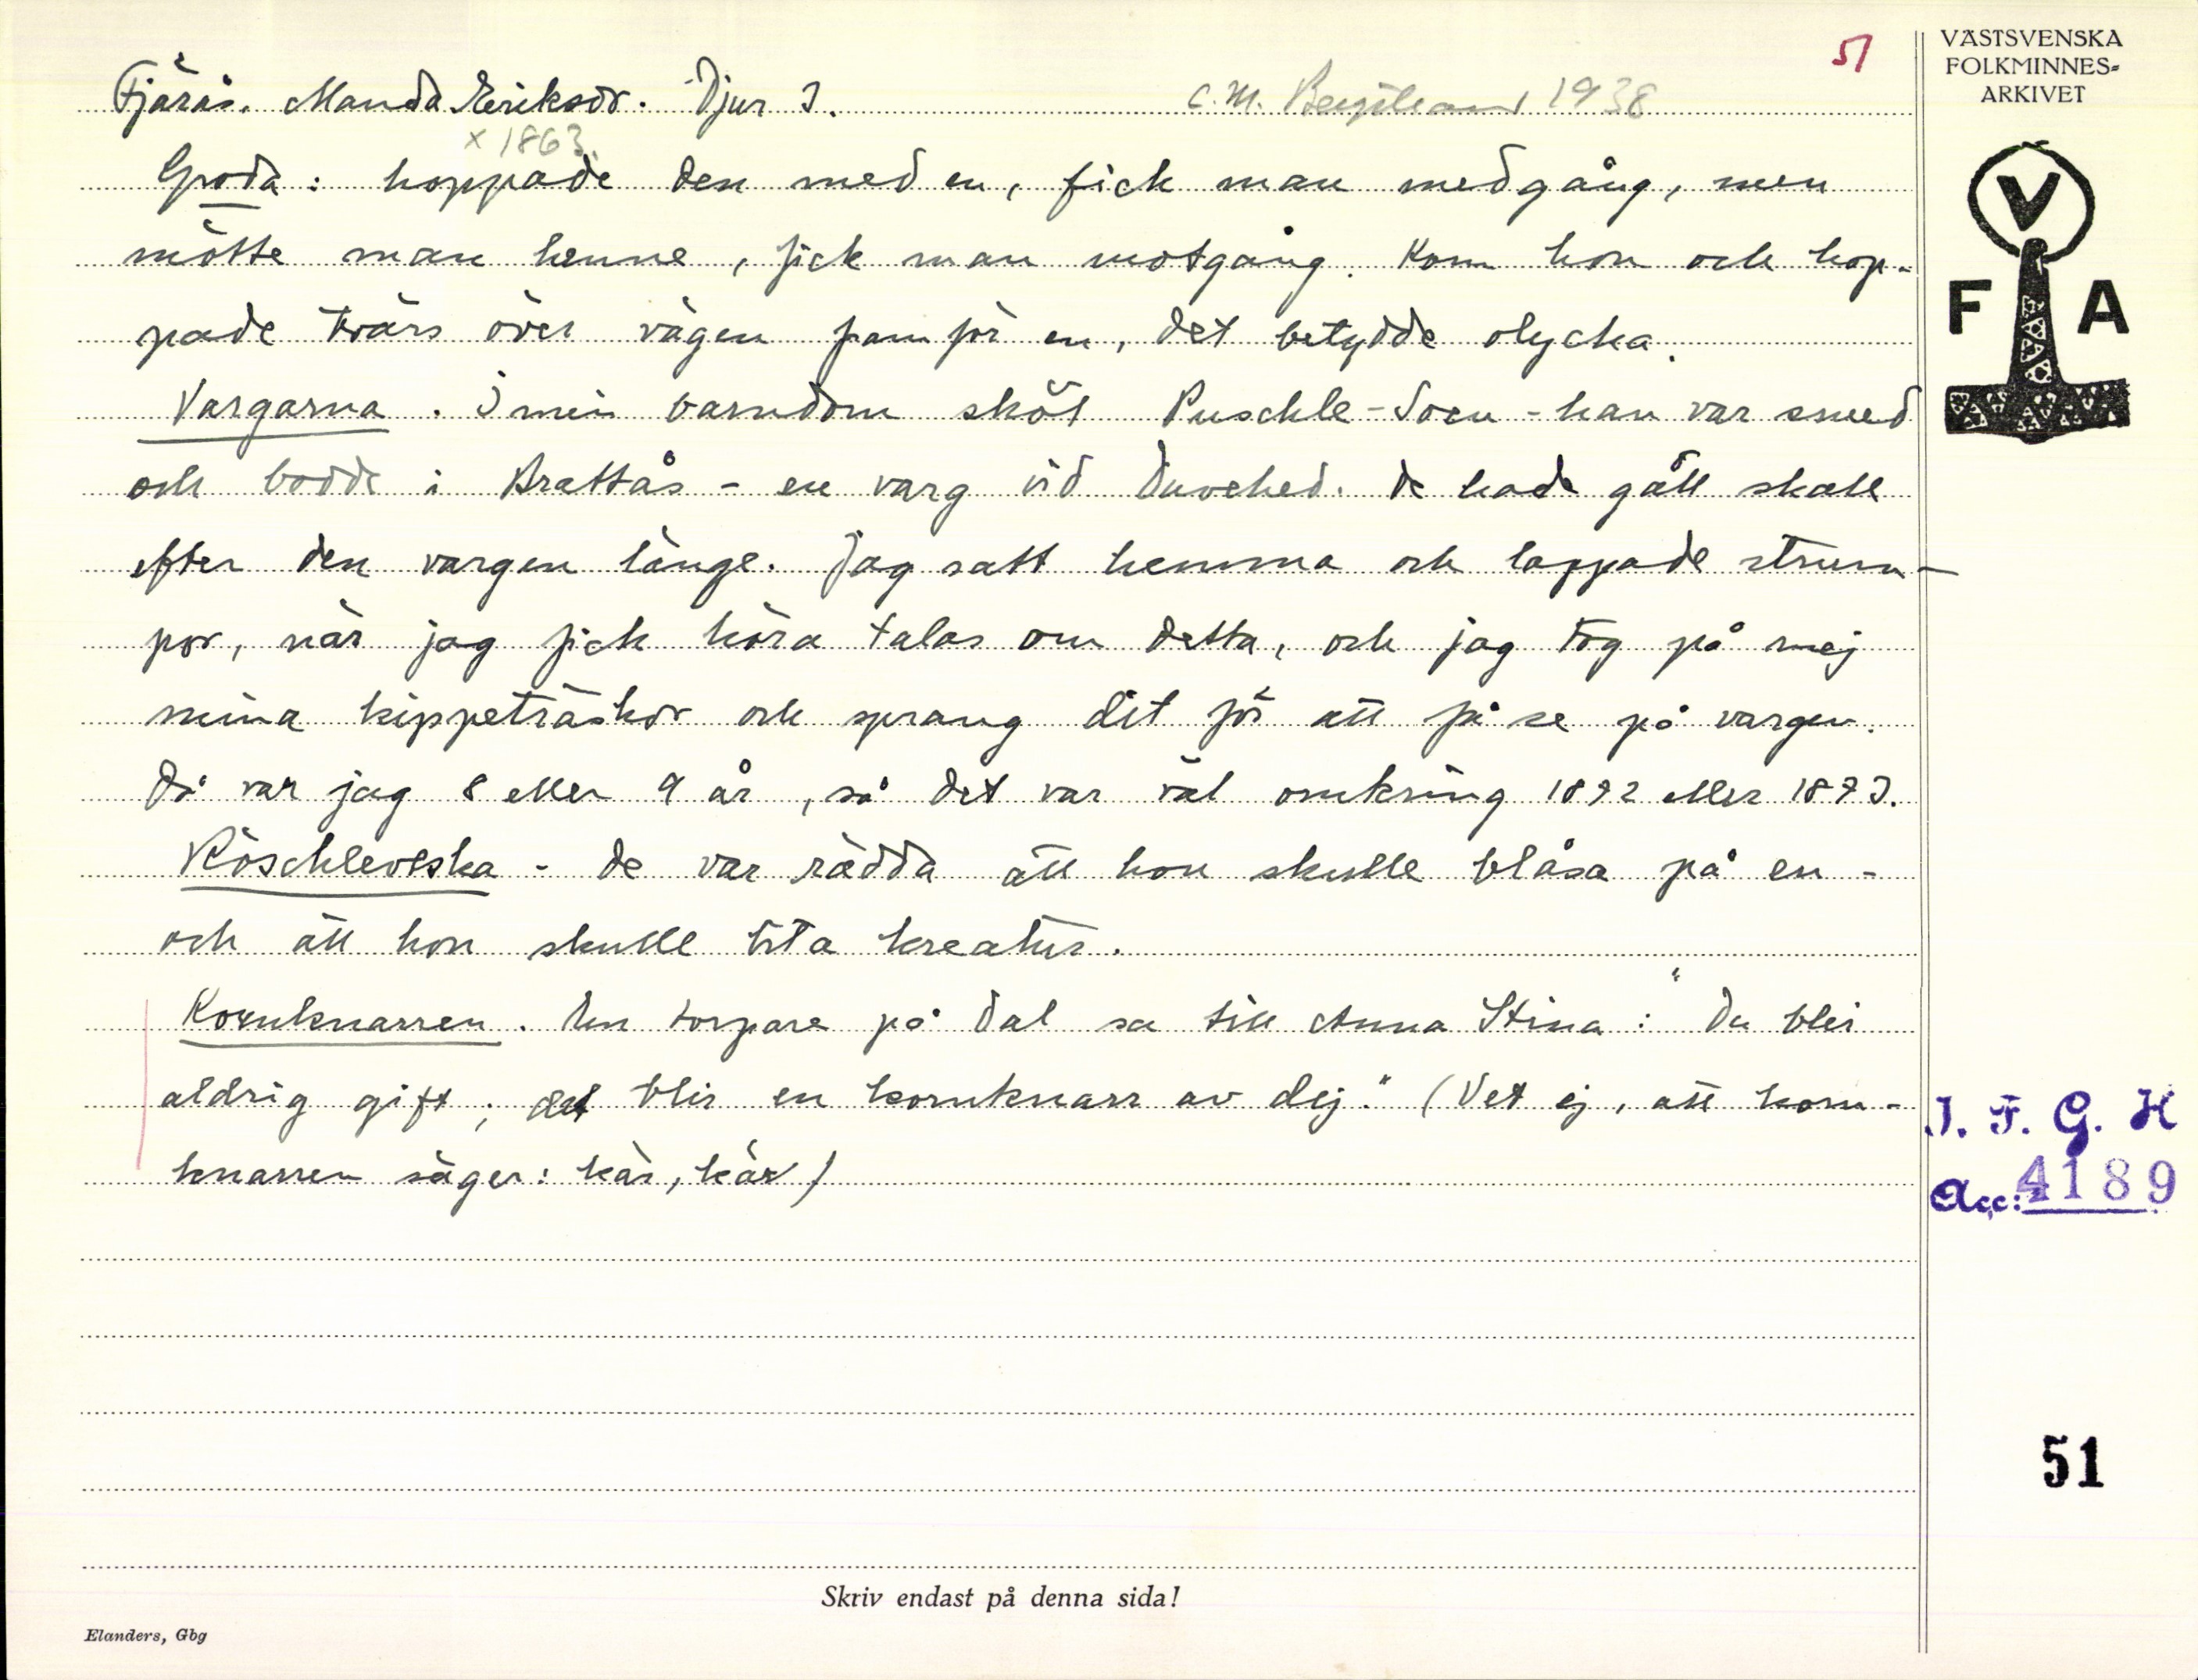 51
VÄSTSVENSKA
FOLKMINNES=
ARKIVET
Fjärås. Manda Erikson. Djur I. C.M. Bergstrand 1938
x 1863.
Groda: hoppade den med en, fick man medgång, men
mötte man henne, fick man motgång. Kom hon och hop-
pade tvärs över vägen framför en, det betydde olycka.
V
F A
Vargarna. I min barndom sköt Puschle-Soen - han var smed
och bodde i Brattås - en varg vid Duvehed. De hade gått skall
efter den vargen länge. Jag satt hemma och lappade strum-
por, när jag fick höra talas om detta, och jag tog på mej
mina kippeträskor och sprang dit för att få se på vargen.
Då var jag 8 eller 9 år, så det var väl omkring 1872 eller 1873.
Röschleveska - de var rädda att hon skulle blåsa på en -
och att hon skulle bita kreatur.
Kornknarren. En torpare på Dal sa till Anna Stina: "Du blir
aldrig gift; det blir en kornknarr av dej." (Vet ej, att korn-
knarren säger: kär, kär)
I. F. G. H
Acc: 4189
51
Skriv endast på denna sida!
Elanders, Gbg